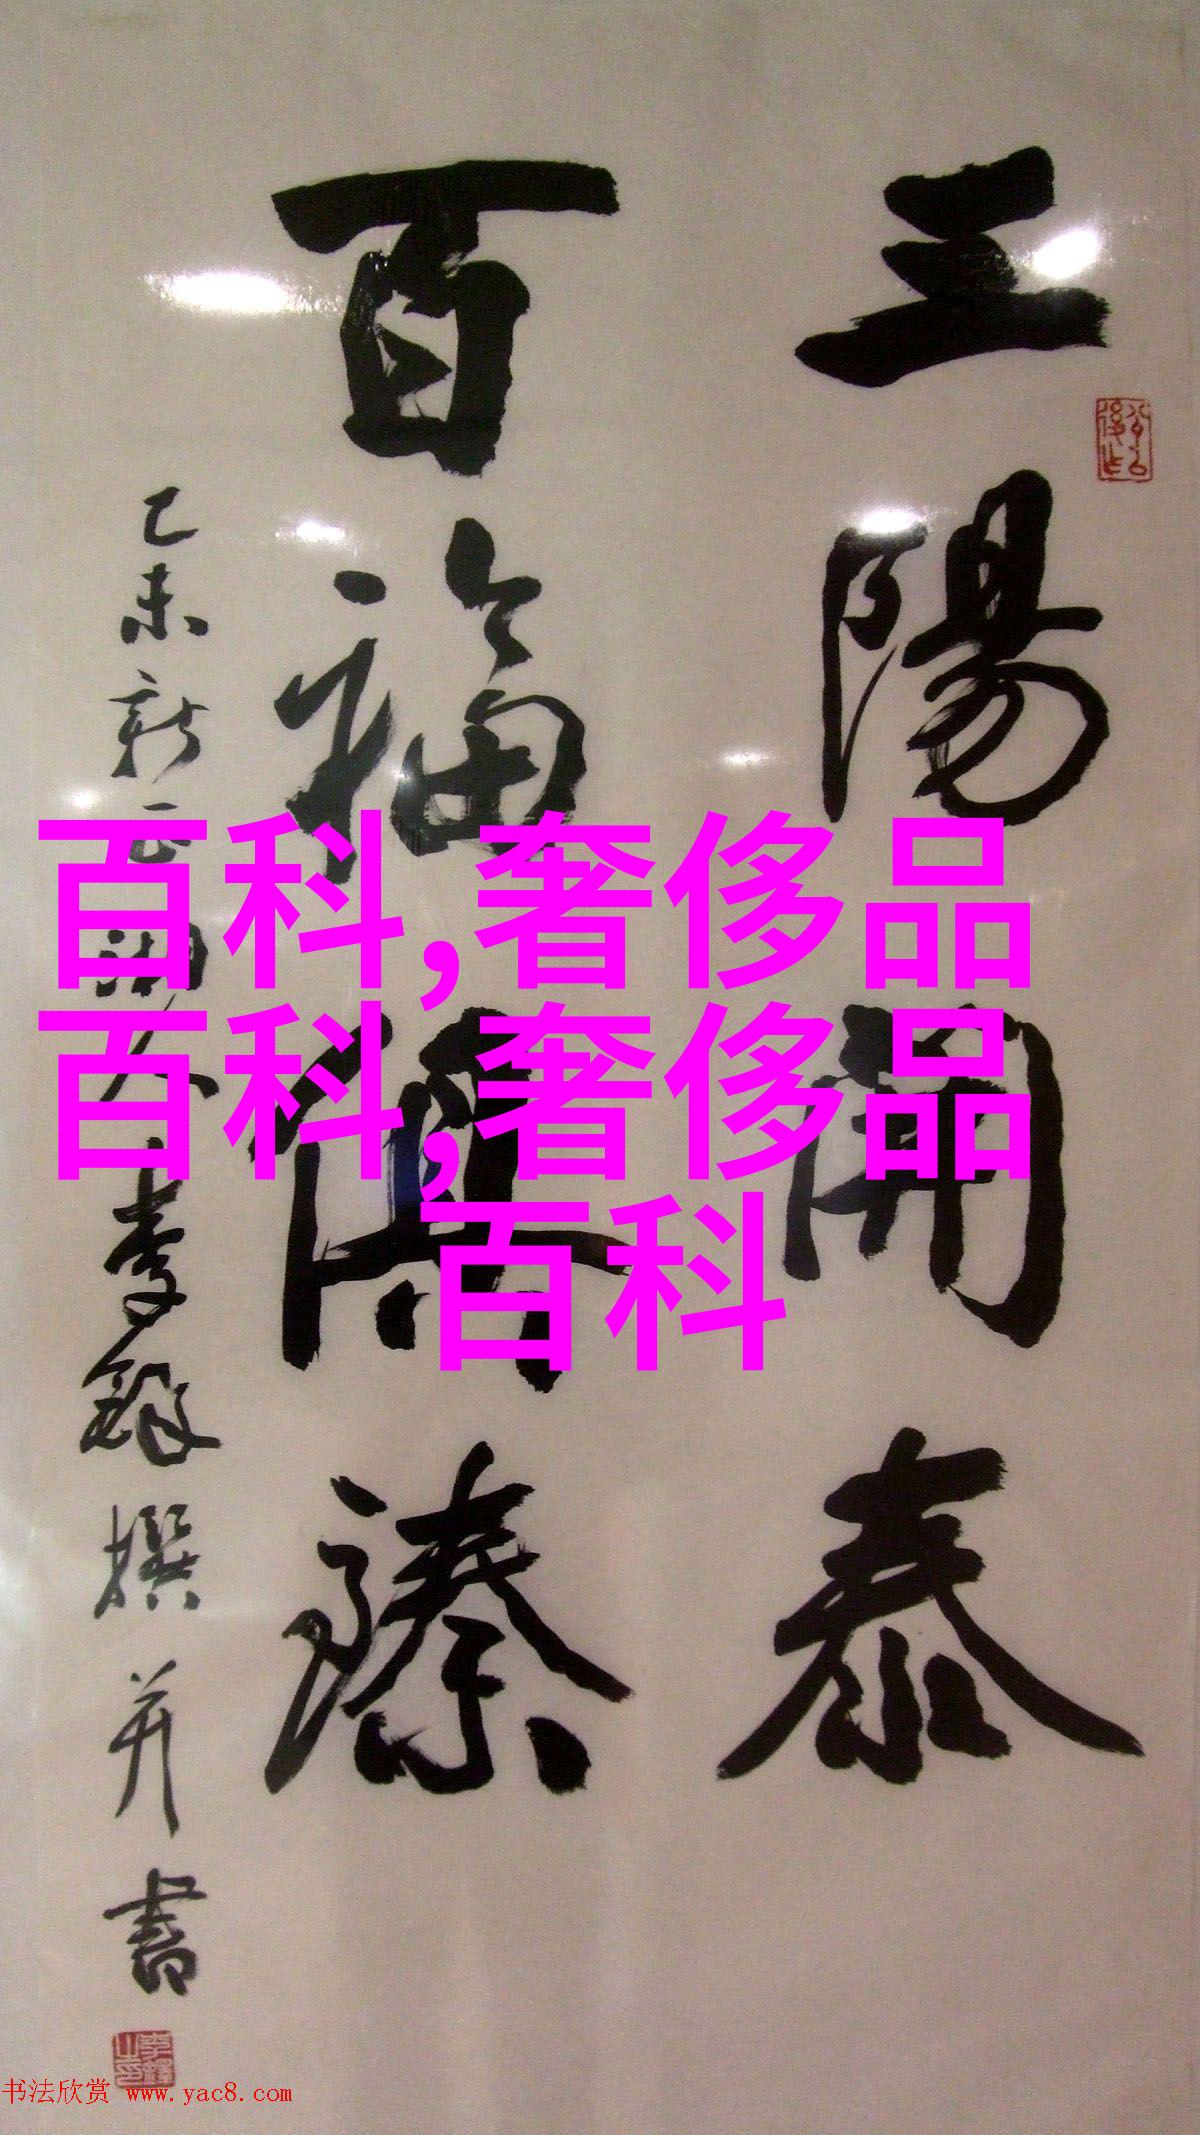 三陽開泰
百福俱臻
乙未新正湖人李鐸撰并書
百科,奢侈品
百科,奢侈品
百科
书法欣赏 www.yac8.com